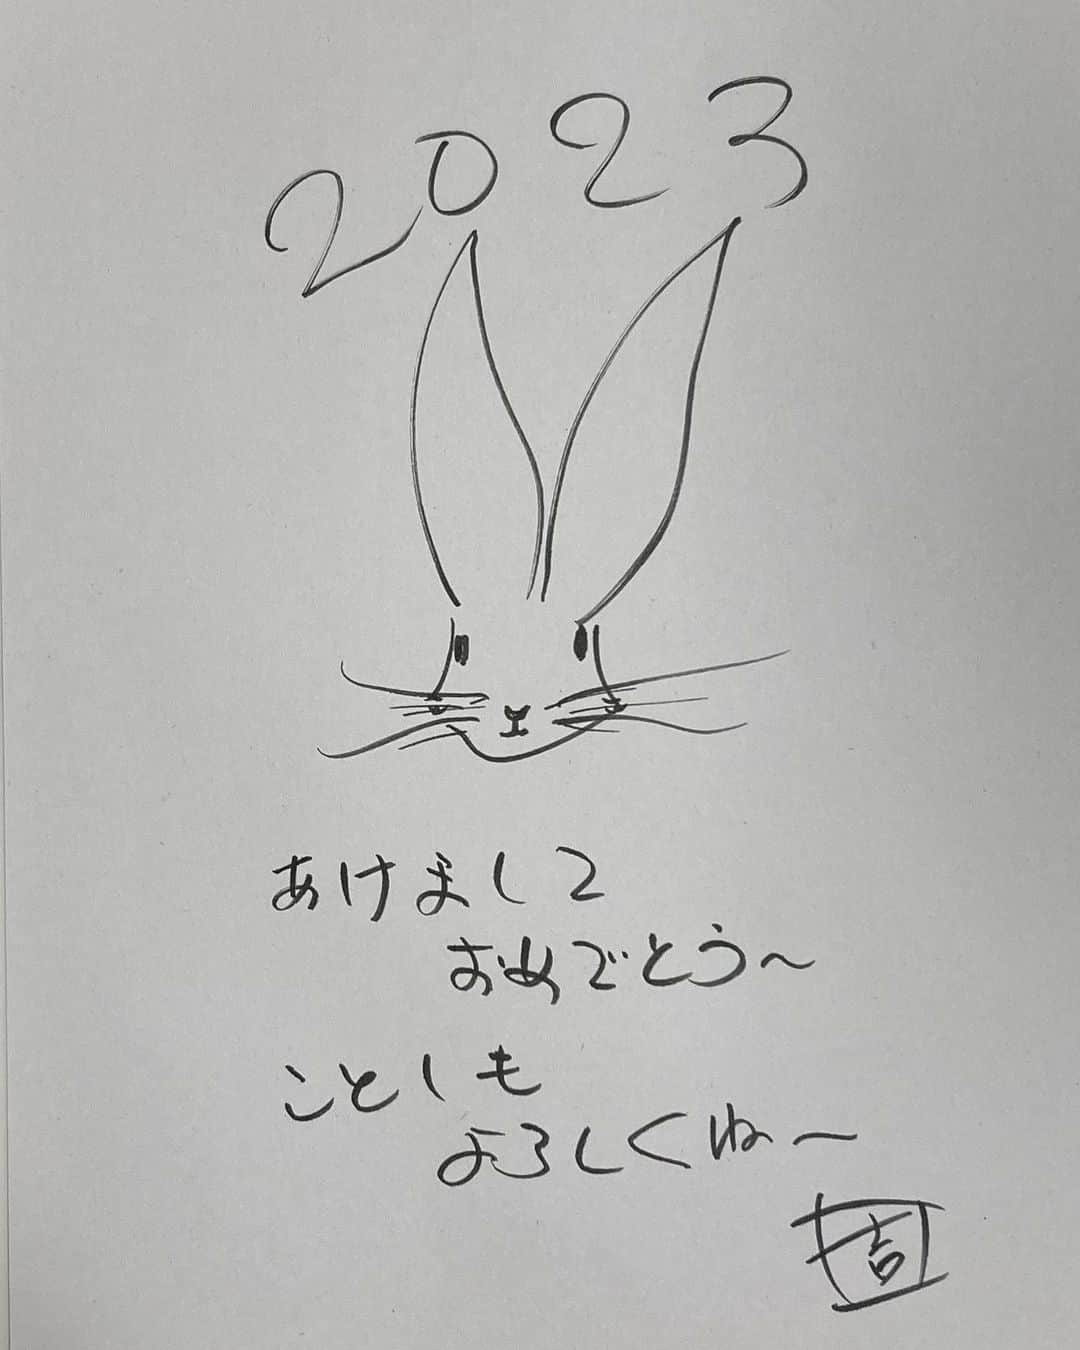 2023
あけまして
おめでとう〜
ことしも
よろしくね〜
吉